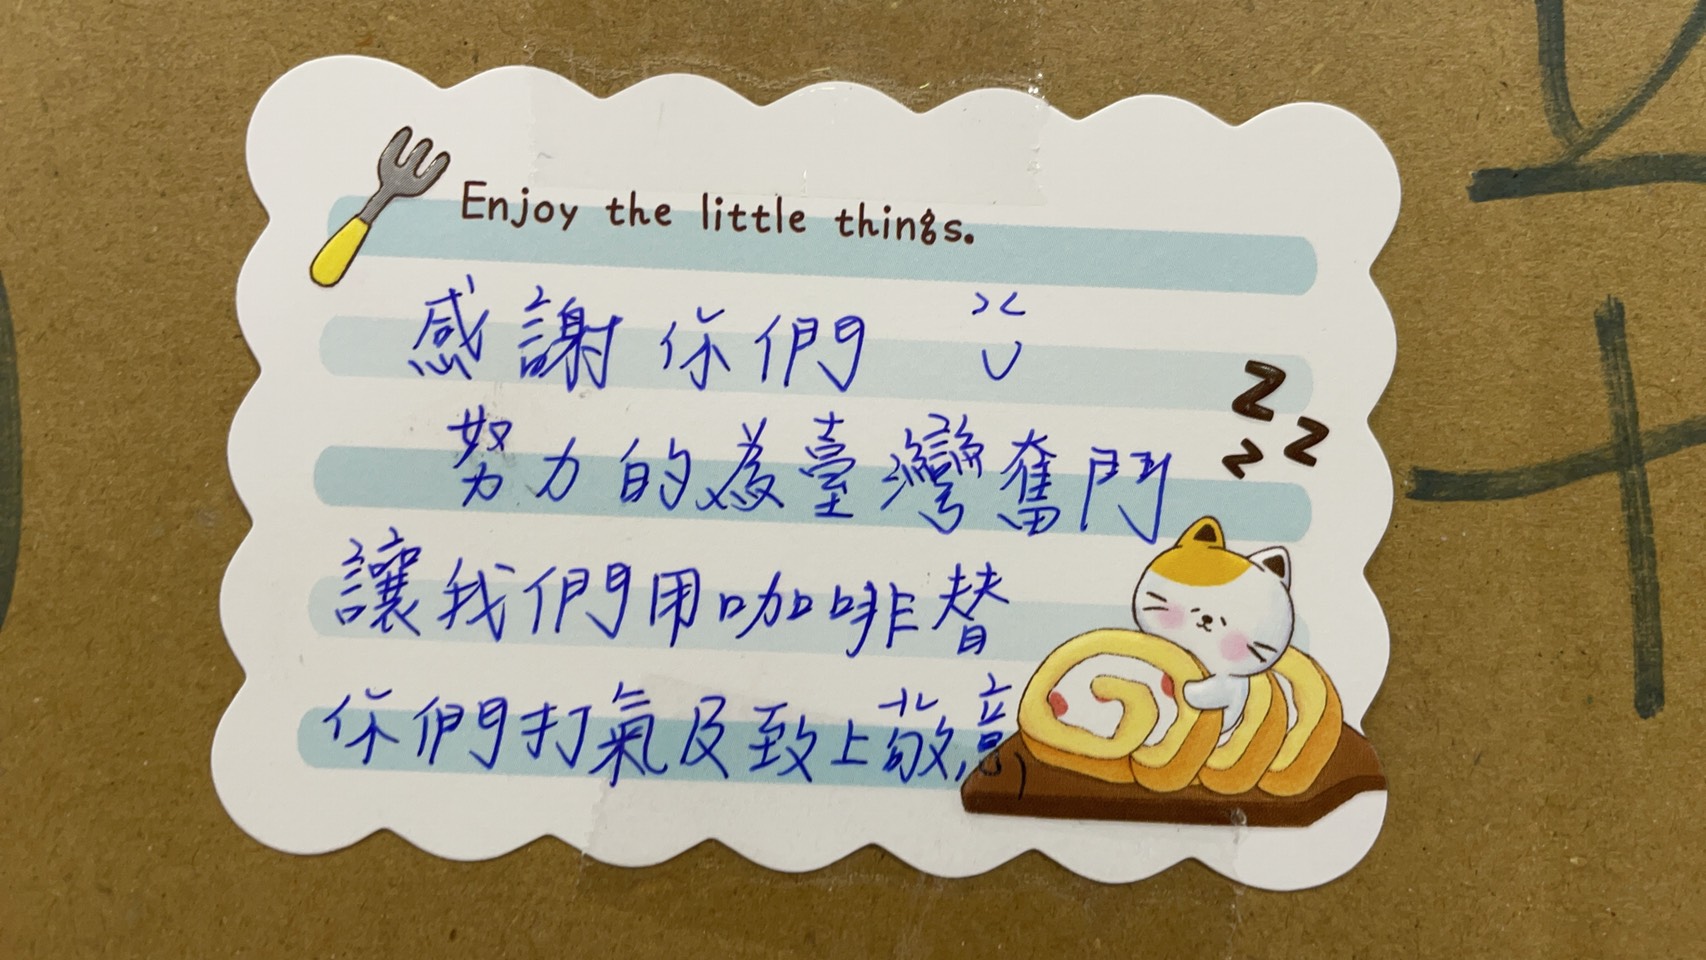 Enjoy the little things.
感謝你們
努力的為臺灣奮鬥
讓我們用咖啡替
你們打氣及致上敬意
z z z